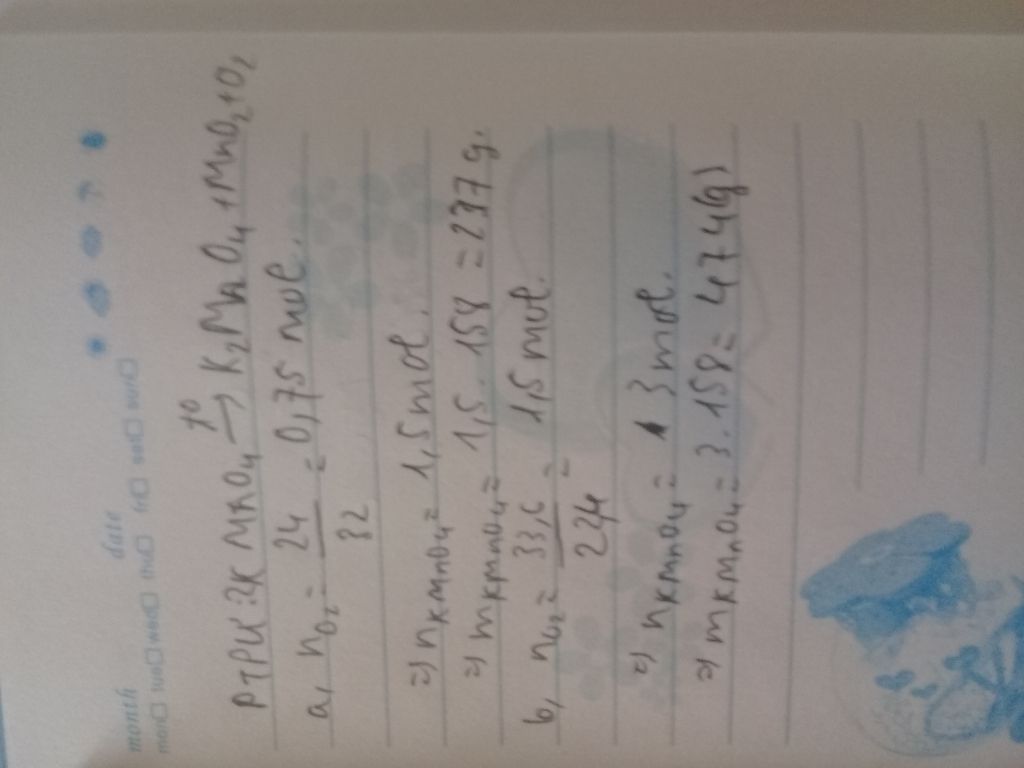 month date
mon tue wed thu fri sat sun
PTPU: 2K MnO4 t° → K2MnO4 + MnO2 + O2
a, nO2 = 24/32 = 0,75 mol.
=) nKMnO4 = 1,5 mol.
=) mKMnO4 = 1,5 . 158 = 237 g.
b, nO2 = 33,6/22,4 = 1,5 mol.
=) nKMnO4 = 3 mol.
=) mKMnO4 = 3.158 = 474(g)